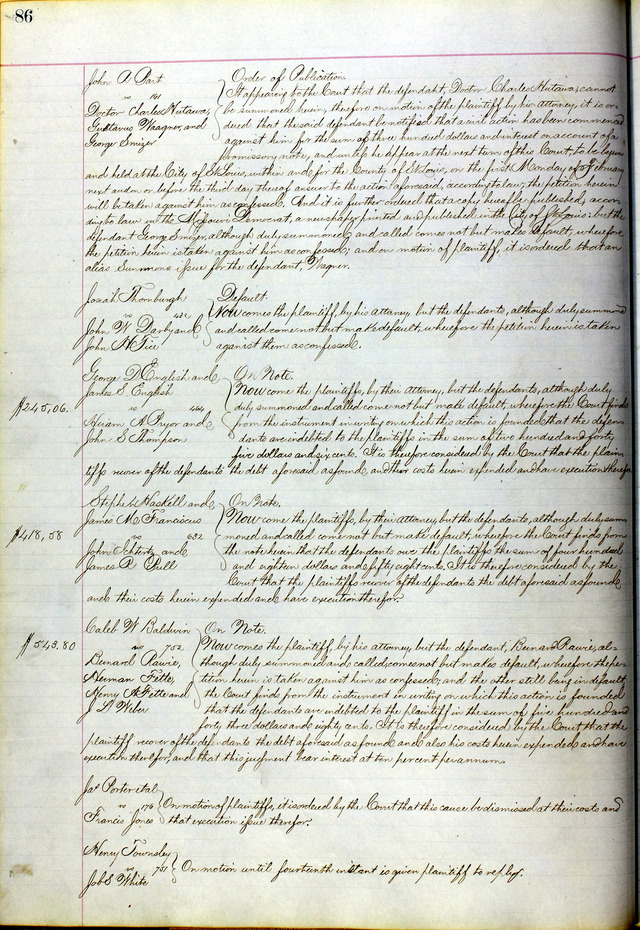 86
John A. Part
vs 141
Doctor Charles Hutawa,
Gustavus Wagner, and
George Smizer
Order of Publication.
It appearing to the Court that the defendant, Doctor Charles Hutawa, cannot
be summoned herein, therefore on motion of the plaintiff by his attorney, it is or-
dered that the said defendant be notified that a civil action has been commenced
against him for the sum of three hundred dollars and interest on account of a
promissory note, and unless he appear at the next term of this Court, to be begun
and held at the City of St Louis, within and for the County of St Louis, on the first Monday of February
next and on or before the third day thereof answer to the action aforesaid, according to law, the petition herein
will be taken against him as confessed. And it is further ordered that a copy hereof be published, accor-
ding to law in the Missouri Democrat, a newspaper printed and published in the City of St Louis: but the
defendant George Smizer, although duly summoned and called comes not but makes default, wherefore
the petition herein is taken against him as confessed; and on motion of plaintiff, it is ordered that an
alias Summons issue for the defendant, Wagner.
Josiah Thornburgh
vs 431
John W Darby and
John H Tice
Default.
Now comes the plaintiff, by his attorney, but the defendants, although duly summoned
and called come not but make default; wherefore the petition herein is taken
against them as confessed.
George D English and
James S. English
vs 464
Hiram A Pryor and
John S Thompson
$245,06.
On Note.
Now come the plaintiffs, by their attorney, but the defendants, although duly
duly summoned and called come not but make default, wherefore the Court finds
from the instrument in writing on which this action is founded that the defen-
dants are indebted to the plaintiffs in the sum of two hundred and forty
five dollars and six cents. It is therefore considered by the Court that the plain-
tiffs recover of the defendants the debt aforesaid as found, and their costs herein expended and have execution therefor
Stephen Haskell and
James M. Franciscus
vs 682
John and
James R
$418,58
On Note.
Now come the plaintiffs, by their attorney but the defendants, although duly sum-
moned and called come not but make default, wherefore the Court finds from
the note herein that the defendants owe the plaintiffs the sum of four hundred
and eighteen dollars and fifty eight cents. It is therefore considered by the
Court that the plaintiffs recover of the defendants the debt aforesaid as found
and their costs herein expended and have execution therefor.
Caleb W Baldwin
vs 752
Bernard Ravie,
Herman Fette,
Henry A Fette and
J L Weber
$543.80
On Note.
Now comes the plaintiff, by his attorney, but the defendant, Bernard Ravie, al-
though duly summoned and called, comes not but makes default, wherefore the pe-
tition herein is taken against him as confessed; and the other still being in default,
the Court finds from the instrument in writing on which this action is founded
that the defendants are indebted to the plaintiff in the sum of five hundred and
forty three dollars and eighty cents. It is therefore considered by the Court that the
plaintiff recover of the defendants the debt aforesaid as found and also his costs herein expended and have
execution therefor, and that this judgment bear interest at ten percent per annum.
Jas Porter et al
vs 176
Francis Jones
On motion of plaintiffs, it is ordered by the Court that this cause be dismissed at their costs and
that execution issue therefor.
Henry Townsley
vs 751
Job S White
On motion until fourteenth instant is given plaintiff to reply.